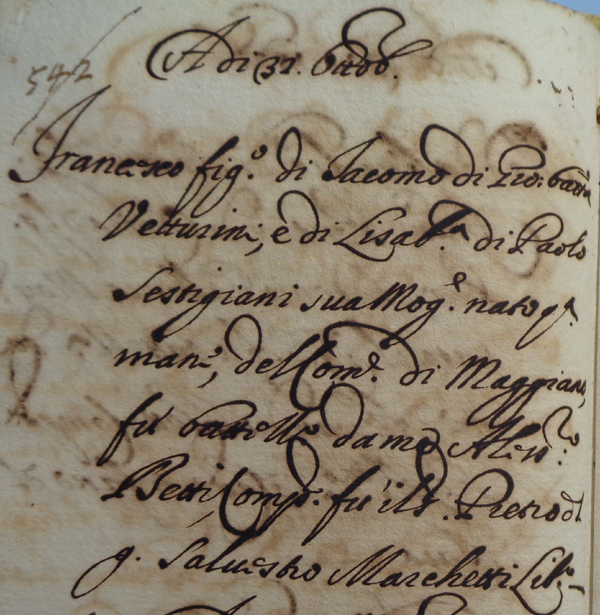 542
A di 31. Ottob.
Francesco fig.o di Iacomo di Gio: batta
Vetturini, e di Lisab.a di Paolo
Sestigiani sua Mog.e nato q.a
man.a, del Com.e di Maggiano,
fu batt.o da me Aless.o
Betti, Comp.e fu il s. Pietro d
g. Saluestro Marchetti Lib.o